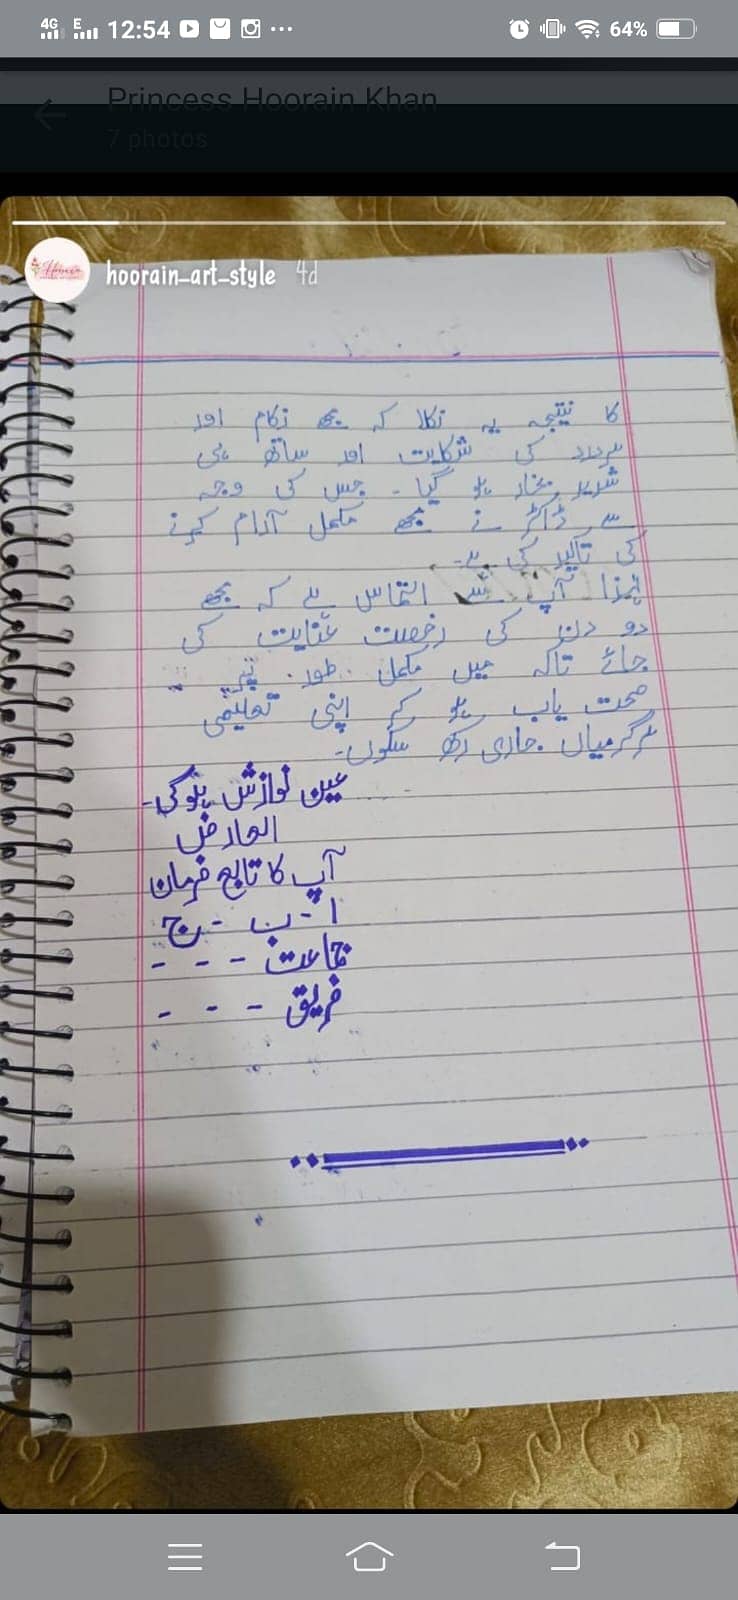 4G E 12:54 64%
Princess Hoorain Khan
7 photos
hoorain_art_style 4d
کا نتیجہ یہ نکلا کہ مجھے زکام اور
سردرد کی شکایت اور ساتھ ہی
شدید بخار ہو گیا۔ جس کی وجہ
سے ڈاکٹر نے مجھے مکمل آرام کرنے
کی تاکید کی ہے۔
لہٰذا آپ سے التماس ہے کہ مجھے
دو دن کی رخصت عنایت کی
جائے تاکہ میں مکمل طور
صحت یاب ہو کر اپنی تعلیمی
سرگرمیاں جاری رکھ سکوں۔
عین نوازش ہوگی۔
العارض
آپ کا تابع فرمان
ا - ب - ج
جماعت - - -
فریق - - -